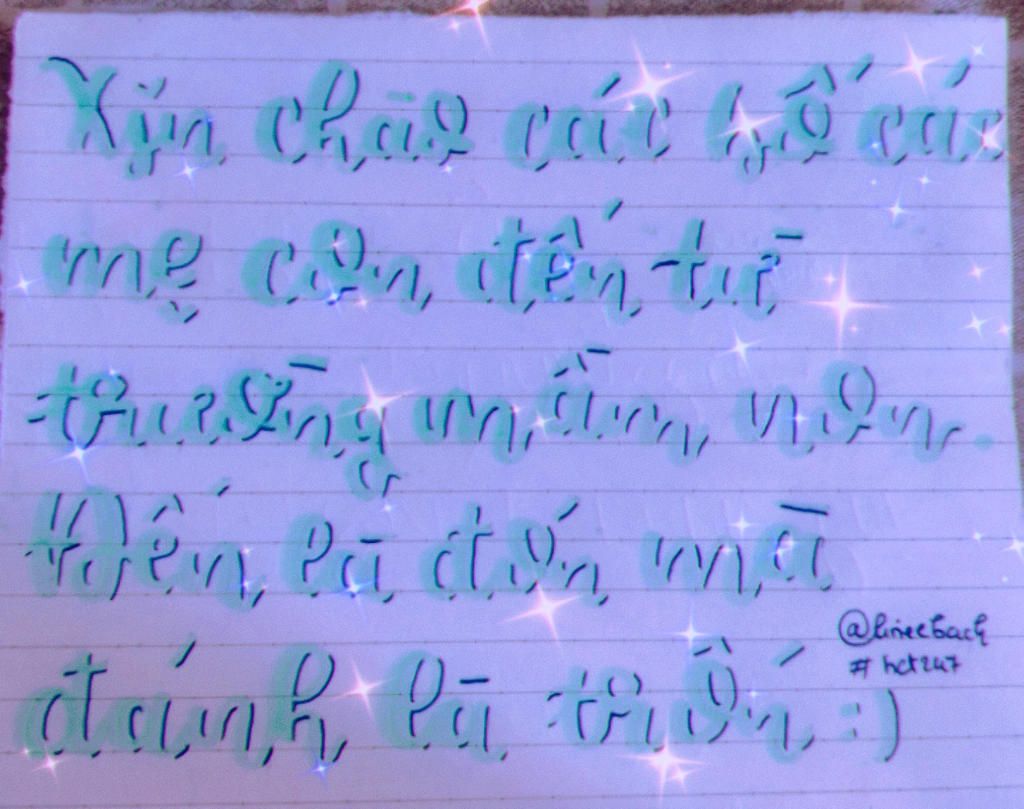 Xin chào các bố các
mẹ con đến từ
trường mầm non.
Đến là đón mà
đánh là trốn :)
@lineebach
#hct247